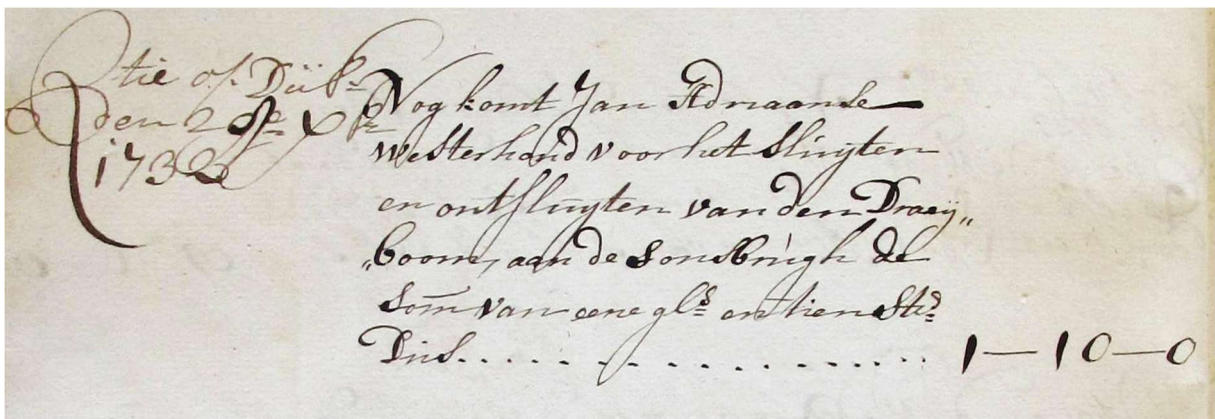 Qtie op Dijk
den 28e Xbr
1732
Nog komt Jan Adriaanse
Westerhand voor het Sluyten
en ontsluyten van den Draeij„
„boom, aan de Sonsbrugh de
Som van eene gls en tien Sts
Dus 1—10—0